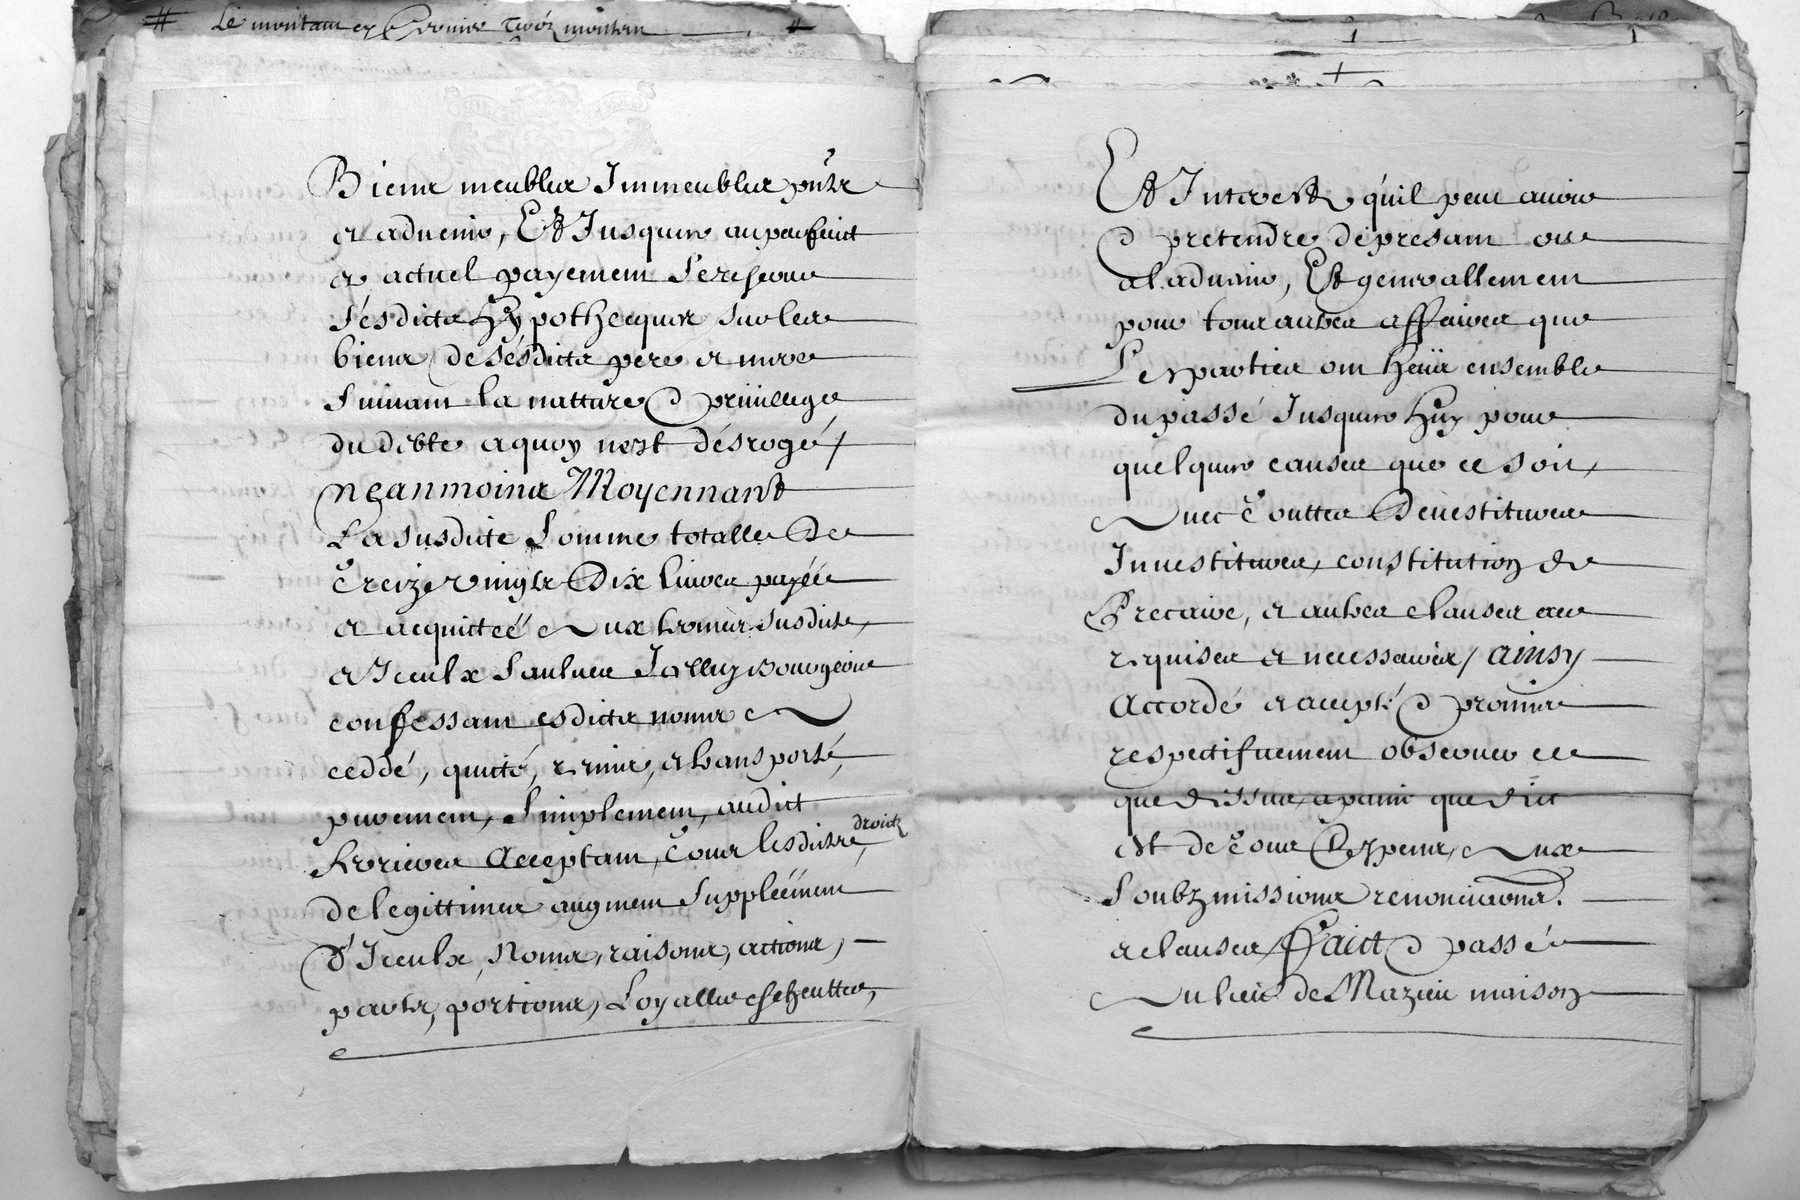 Biens meubles Immeubles pntz
et advenir, Et Jusques au parfaict
et actuel payement Se reserve
Sesdictz Hypothecques sur les
biens desesdictz pere et mere
Suivant la natture et privillege
du debte a quoy nest desrogé /
Neanmoins Moyennant
La susdicte Somme totalle De
Treize vingtz Dix livres payée
et acquittée Aux termes susdictz,
et Iceulx Saulves Bourgeois
confessant esdictz noms A
ceddé, quitté, remis, et transporté,
purement, Simplement, audict
Acceptant, Tous lesdictz, droictz
de legittimes augment Suppleement
D'Iceulx, Noms, raisons, actions,
partz, portions, Loyalles escheuttes,
Et Interestz qu'il peut avoir
et pretendre de present ou
al'advenir, Et generallement
pour tous autres affaires que
Les parties ont Heüs ensemble
du passé Jusques Huy pour
quelques causes que ce soit,
Avec Touttes Devestitures
Investitures, constitution de
Precaire, et autres clauses
requises et necessaires / ainsy
Accordé et accepté et promis
respectifvement observer ce
que dessus, a paine que dict
est de Tous Despens, Aux
Soubzmissions renonciations.
et clauses / Faict et passé
Au lieu de Mazieu maison